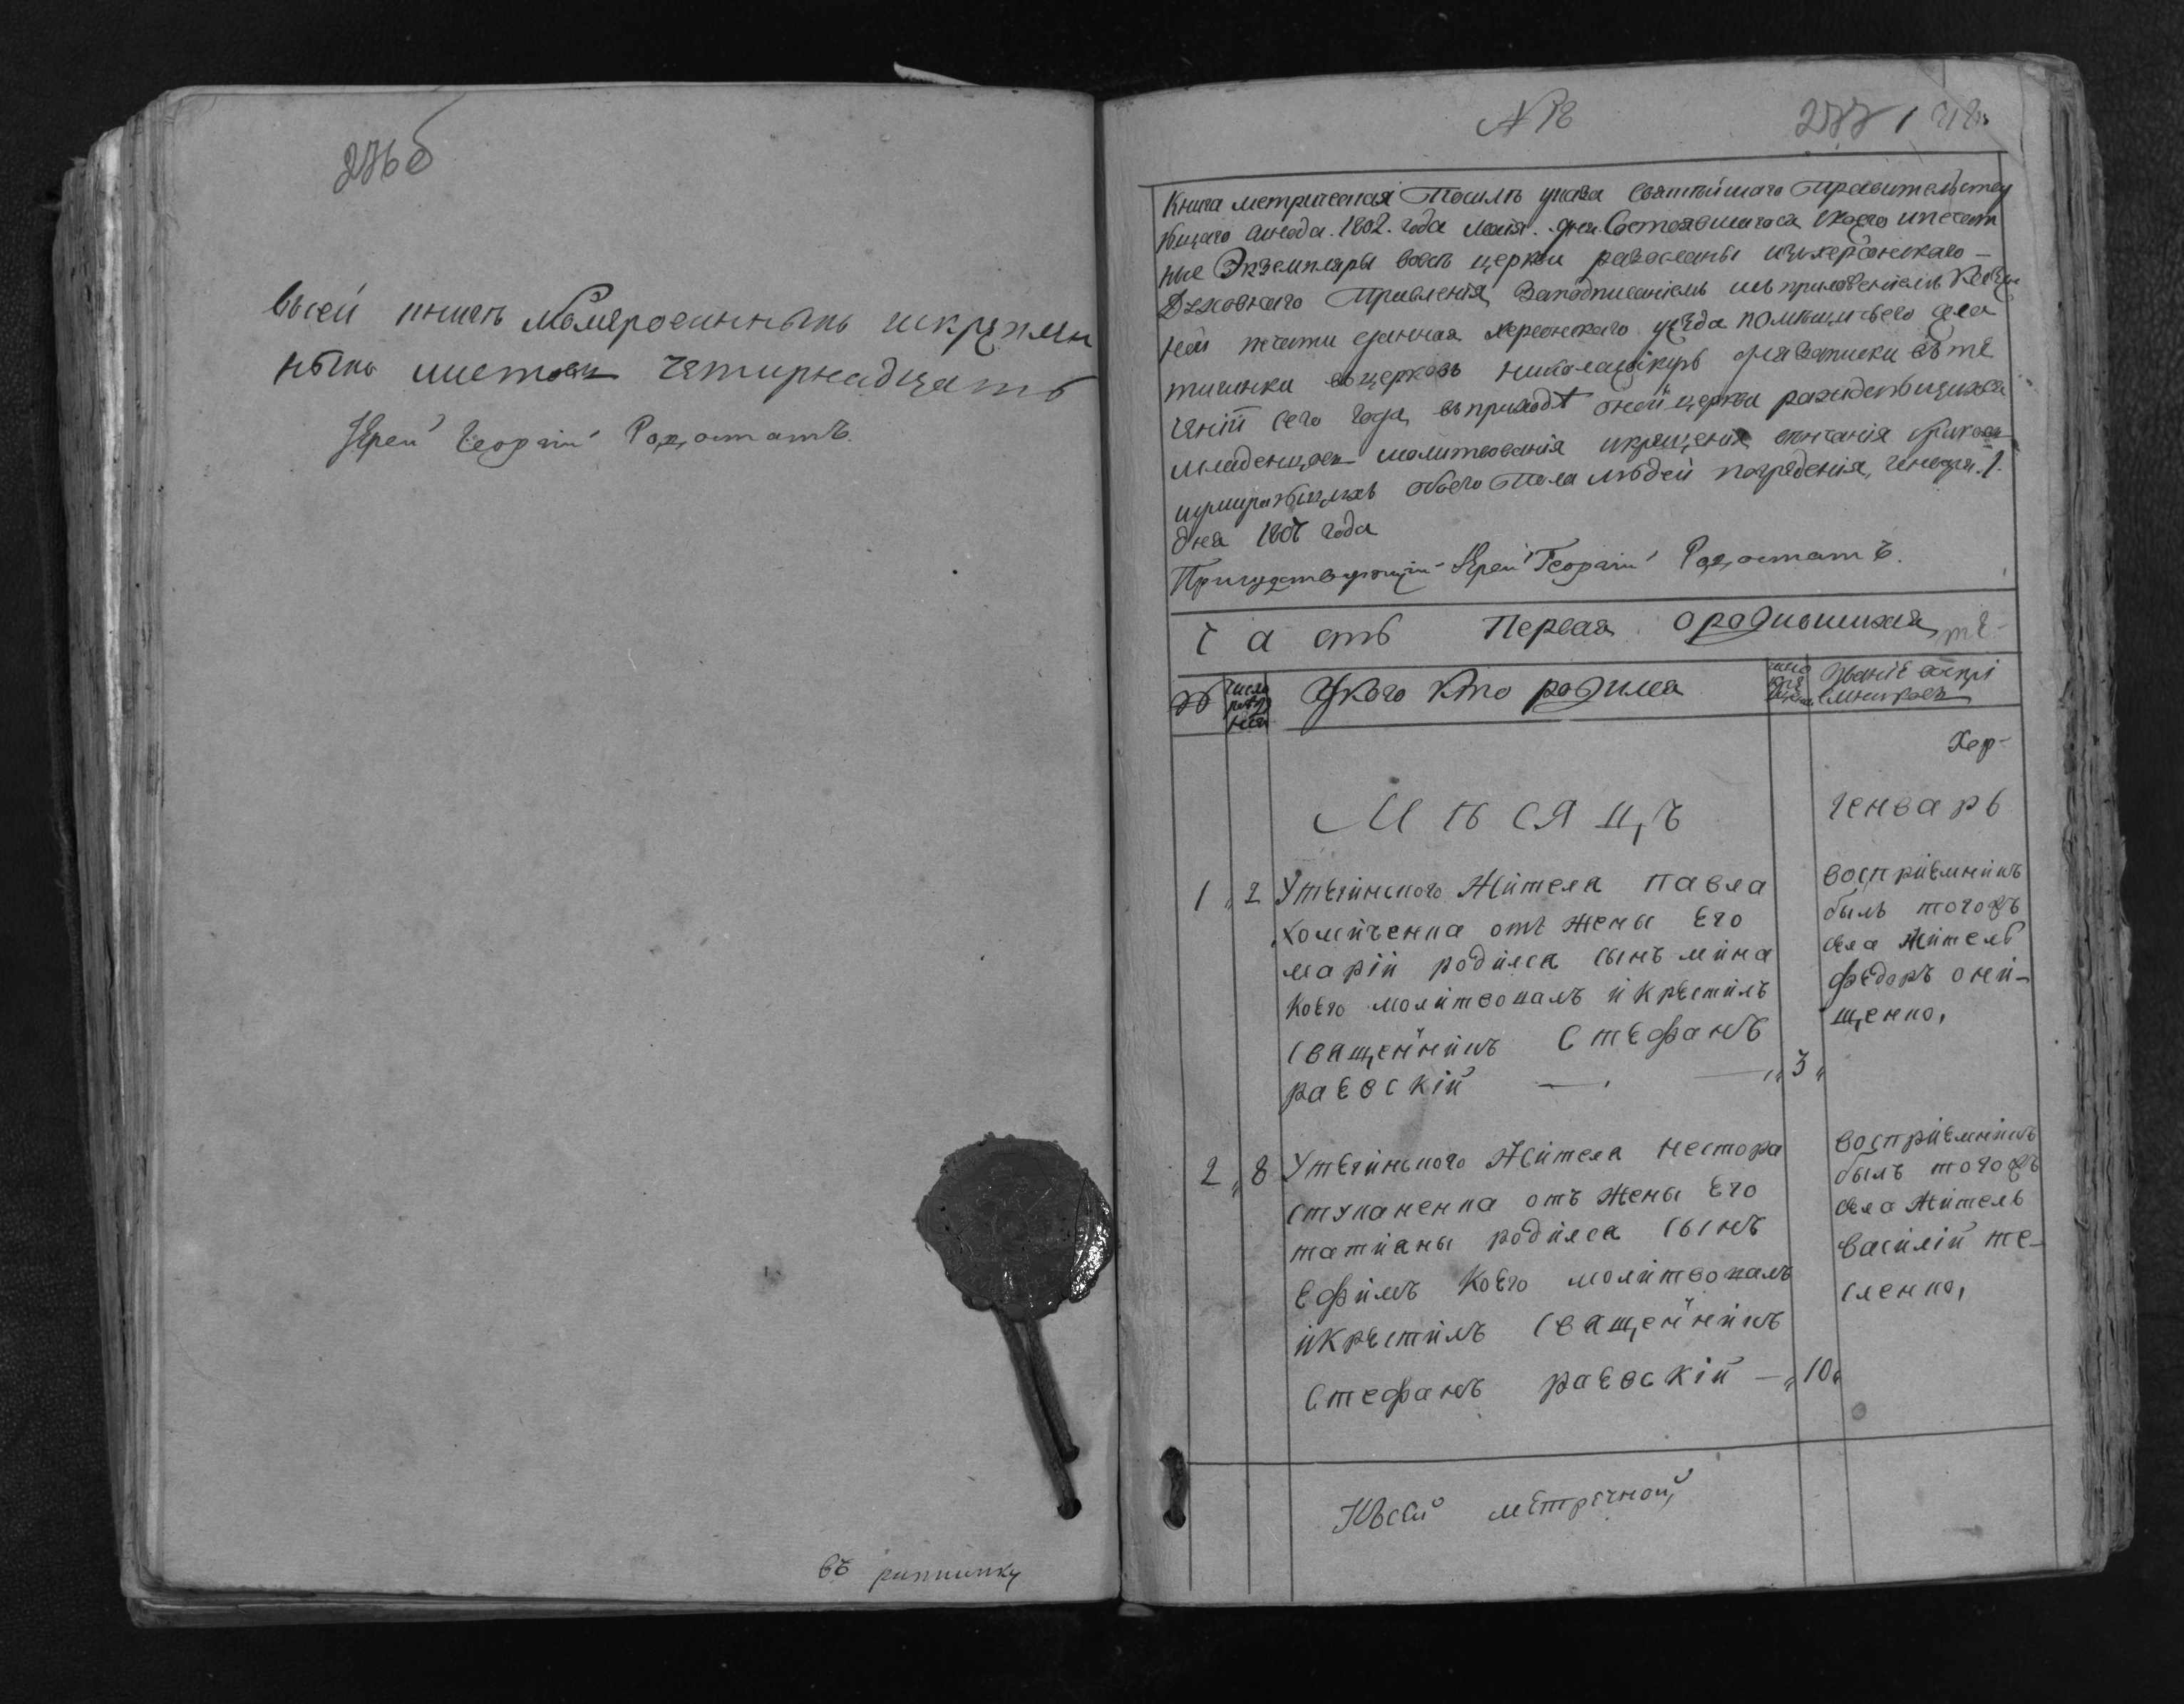 276б
Всей книги номеросанныхъ искрѣплен
ныхъ листовъ четирнадцать
Іерей Георгій
въ
№ 18
277 1
Книга метрическая Посилѣ указа Святѣйшаго Правительству
ющаго Синода. 1802. года маія. дня. Состоявшагося укоего ипечат
ные Экземпляры вовсѣ церкви разосланы изъхерсонскаго —
Духовнаго Правленія, Заподписаніемъ исъприложеніемъ казен
ной печати данная херсонскаго уезда помѣщичьего села
тягинки вцерковь николаевскую длязаписки втѣ
ченіи сего года въприходѣ оной церкви раждающихся
младенцовъ молитвованія икрещенія венчанія браковъ
иумирающихъ обоего Пола людей погребенія, генваря. 1.
дня 1807 года
Присудствующій Іерей Георгій
Часть Первая ородившихся
№
число
рожде
нія
Укого кто родился
число
кре
щенія
Званіе воспрі
емниковъ
Хер-
Мѣсяцъ Генварь
1 „ 2
Утегинского Жителя Павла
хоменченка отъ жены Его
маріи родился сынъ мина
коего молитвовалъ и крестилъ
священникъ Стефанъ
раевскій — „ 3 „
воспріемникъ
былъ тогожъ
села житель
федоръ они-
щенко,
2 „ 8
Утегинского Жителя нестора
ступаненка отъ жены Его
татіаны родился сынъ
Ефимъ коего молитвовалъ
икрестилъ священникъ
Стефанъ раевскій — „ 10 „
воспріемникъ
былъ тогожъ
села житель
василій те-
сленко,
Ксей метричной